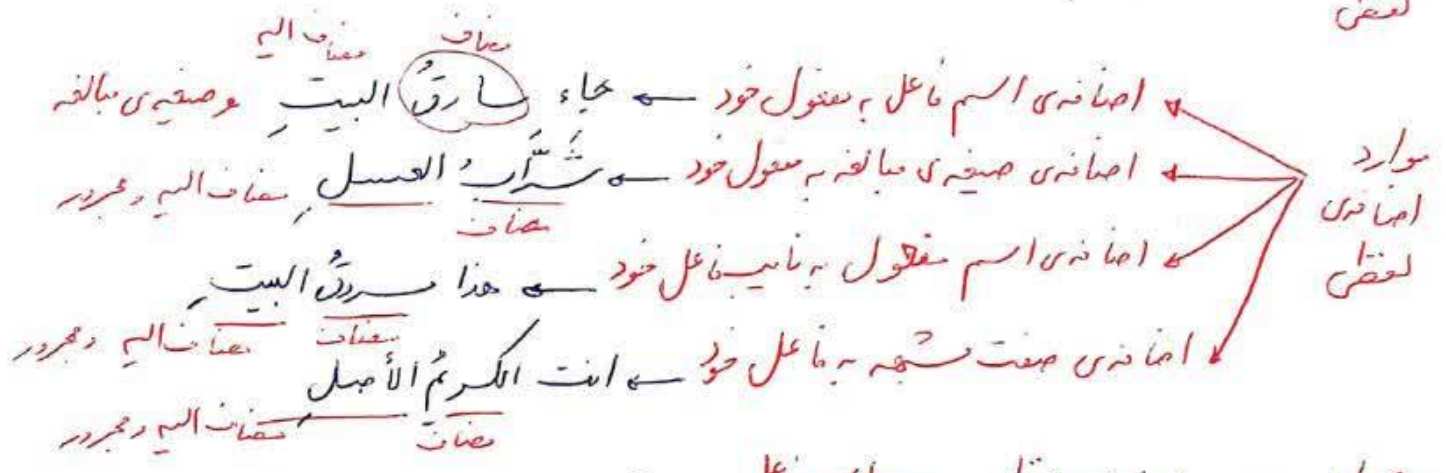 لفظی
مضاف مضاف الیه
اضافه‌ی اسم فاعل به مفعول خود ← جاء سارقُ البیتِ و صیغه‌ی مبالغه
موارد اضافه‌ی لفظی
اضافه‌ی صیغه‌ی مبالغه به مفعول خود ← شَرَّابُ العسلِ مضاف الیه و مجرور
مضاف
اضافه‌ی اسم مفعول به نایب فاعل خود ← هذا مسروقُ البیتِ
مضاف مضاف الیه و مجرور
اضافه‌ی صفت مشبهه به فاعل خود ← انت الکریمُ الأصلِ
مضاف مضاف الیه و مجرور